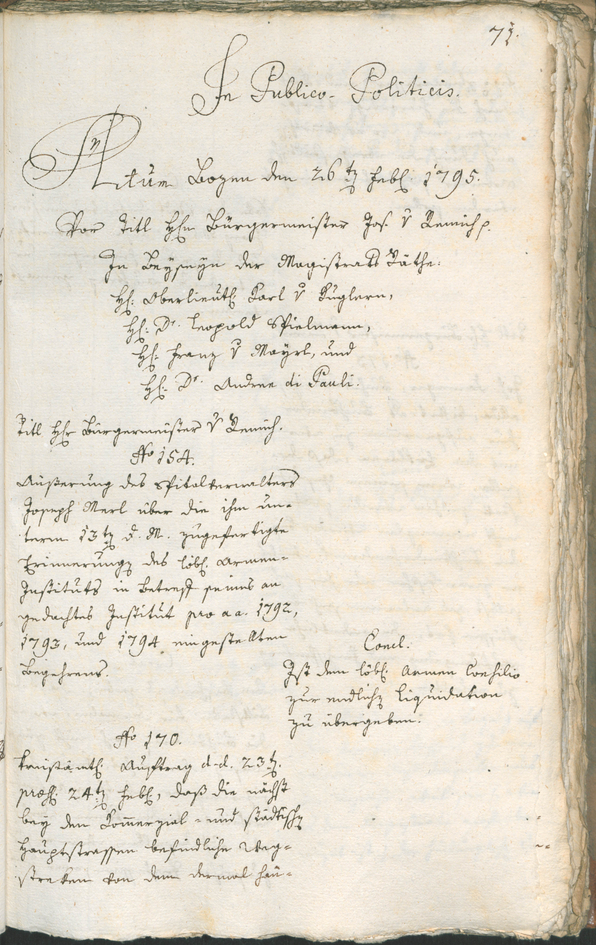 In Publico-Politicis.
Actum Bozen den 26t feb. 1795.
Vor Titl Hrn Bürgermeister Jos. v Remich p.
In Beyseyn der Magistrats Räthe:
H: Oberlieut: Karl v Kuglern,
H: Dr. Leopold Spielmann,
H: Franz v Mayrl, und
H: Dr. Andree di Pauli.
Titl Hr Bürgermeister v Remich.
No 154.
Äußerung des Spitalverwalters
Joseph Merl über die ihm un-
term 13t d. M. zugefertigte
Erinnerung des löbl. Armen-
Instituts in Betreff seines an
gedachtes Institut pro aa. 1792,
1793, und 1794 eingestellten
Begehrens.
Concl.
Ist dem löbl. Armen Consilio
zur endlichen Liquidation
zu übergeben.
No 170.
Kreisämtl. Auftrag d.d. 23t.
præs. 24t feb:, daß die nächst
bey den Kommerzial- und städtischen
Hauptstrassen befindliche Weg-
strecken von dem dermal häu-